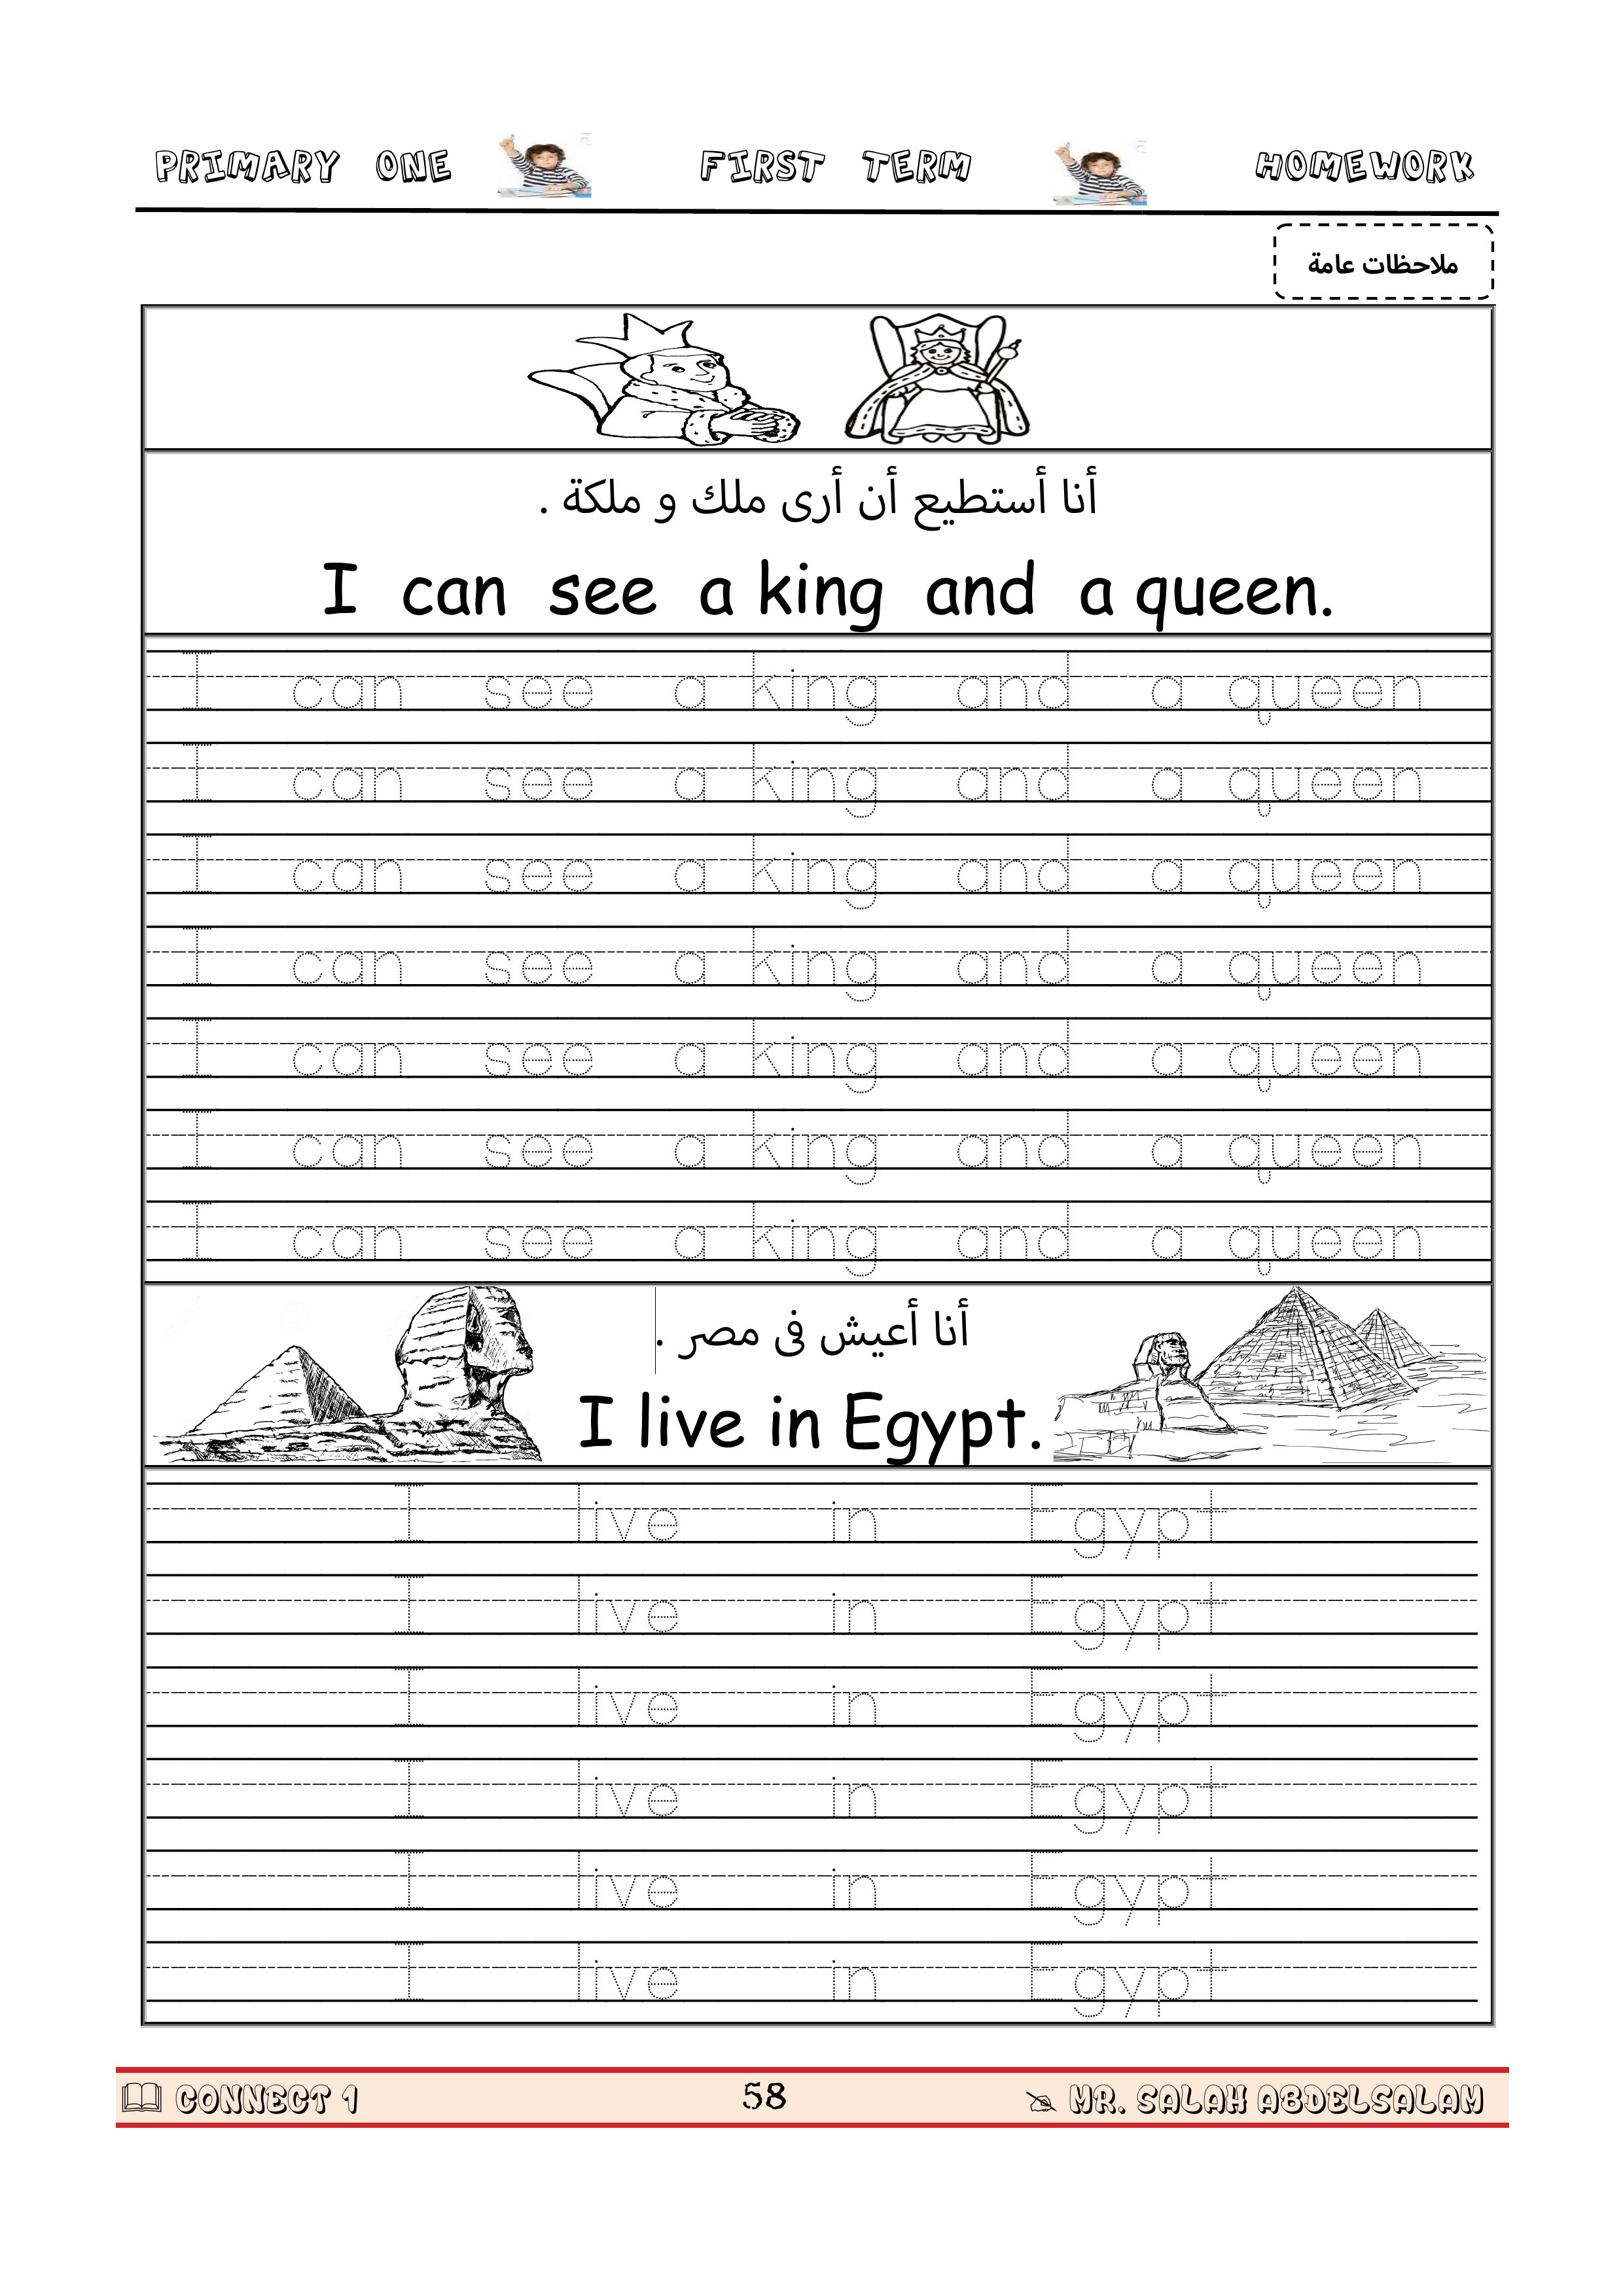 PRIMARY ONE FIRST TERM HOMEWORK
ملاحظات عامة
أنا أستطيع أن أرى ملك و ملكة .
I can see a king and a queen.
I can see a king and a queen
I can see a king and a queen
I can see a king and a queen
I can see a king and a queen
I can see a king and a queen
I can see a king and a queen
I can see a king and a queen
أنا أعيش فى مصر .
I live in Egypt.
I live in Egypt
I live in Egypt
I live in Egypt
I live in Egypt
I live in Egypt
I live in Egypt
CONNECT 1 58 MR. SALAH ABDELSALAM